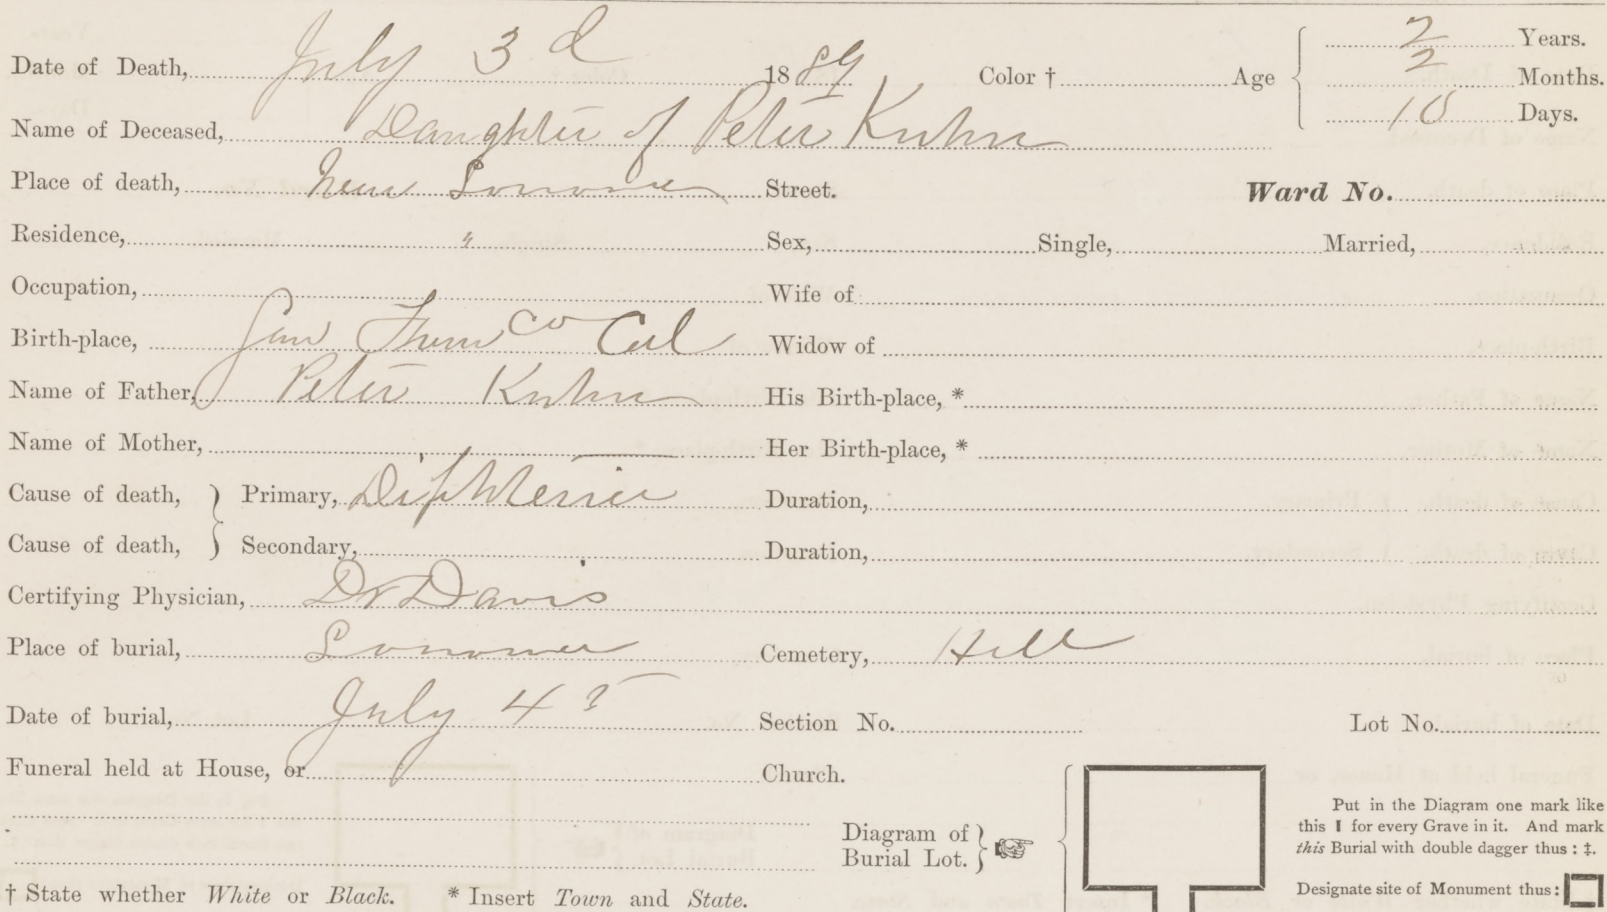 Date of Death, July 3d 1889 Color † Age 2 Years.
2 Months.
10 Days.
Name of Deceased, Daughter of Peter Kuhn
Place of death, Near Sonoma Street. Ward No.
Residence, " Sex, Single, Married,
Occupation, Wife of
Birth-place, San Fran co Cal Widow of
Name of Father, Peter Kuhn His Birth-place, *
Name of Mother, Her Birth-place, *
Cause of death, } Primary, Diphteria Duration,
Cause of death, } Secondary, Duration,
Certifying Physician, Dr Davis
Place of burial, Sonoma Cemetery, Hill
Date of burial, July 4 Section No. Lot No.
Funeral held at House, or Church.
Diagram of Burial Lot. }
Put in the Diagram one mark like
this I for every Grave in it. And mark
this Burial with double dagger thus : ‡.
Designate site of Monument thus :
† State whether White or Black. * Insert Town and State.